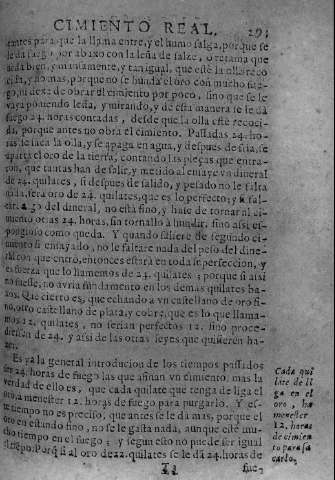 CIMIENTO REAL.
tantes para que la llama entre, y el humo salga, porque se
le da fuego por abaxo con la leña de salze, o retama que
seada bien, y manidamente, y tan igual, que esté la olla reco
cida, y no mas, porque no se hunda el oro con mucho fue-
go, ni dexe de obrar el cimiento por poco, sino que se le
vaya poniendo leña, y mirando, y de esta manera se le dà
fuego 24. horas contadas, desde que la olla esté recoci-
da, porque antes no obra el cimiento. Passadas 24. ho-
ras, se saca la olla, y se apaga en agua, y despues de fria, se
aparta el oro de la tierra, contando las pieças que entra-
ron, que tantas han de salir, y metido al ensaye vn dineral
de 24. quilates, si despues de salido, y pesado no le falta
nada, será oro de 24. quilates, que es lo perfecto; y si sal-
del dineral, no està fino, y hase de tornar al ci-
miento otras 24. horas, sin tornallo à hundir, sino assi es-
ponjoso como queda. Y quando saliere de segundo ci-
miento si ensayado, no le faltare nada del peso del dine-
ral con que entrò, entonces estarà en toda su perfeccion, y
es fuerça que lo llamemos de 24. quilates; porque si assi
no fuesse, no avria fundamento en los demas quilates ba-
xos. Que cierto es, que echando a vn castellano de oro fi-
no, otro castellano de plata, y cobre, que es lo que llama-
mos 12. quilates, no serian perfectos 12. sino proce-
diessen de 24. y assi de las otras leyes que quisieren ha-
Es ya la general introducion de los tiempos passados
ser 24. horas de fuego las que afinan vn cimiento, mas la
verdad de ello es, que cada quilate que tenga de liga el
oro, a menester 12. horas de fuego para purgarlo. Y es-
te tiempo no es preciso, que antes se le dà mas, porque el
oro en estando fino, no se le gasta nada, aunque esté mu-
cho tiempo en el fuego; y segun esto no puede ser igual
el tiempo. Porq̃ si al oro de 22. quilates se le dà 24. horas de
Cada qui
late de li
ga en el
oro, ha
menester
12. horas
de cimien
to para sa
carlo.
T3
fue-